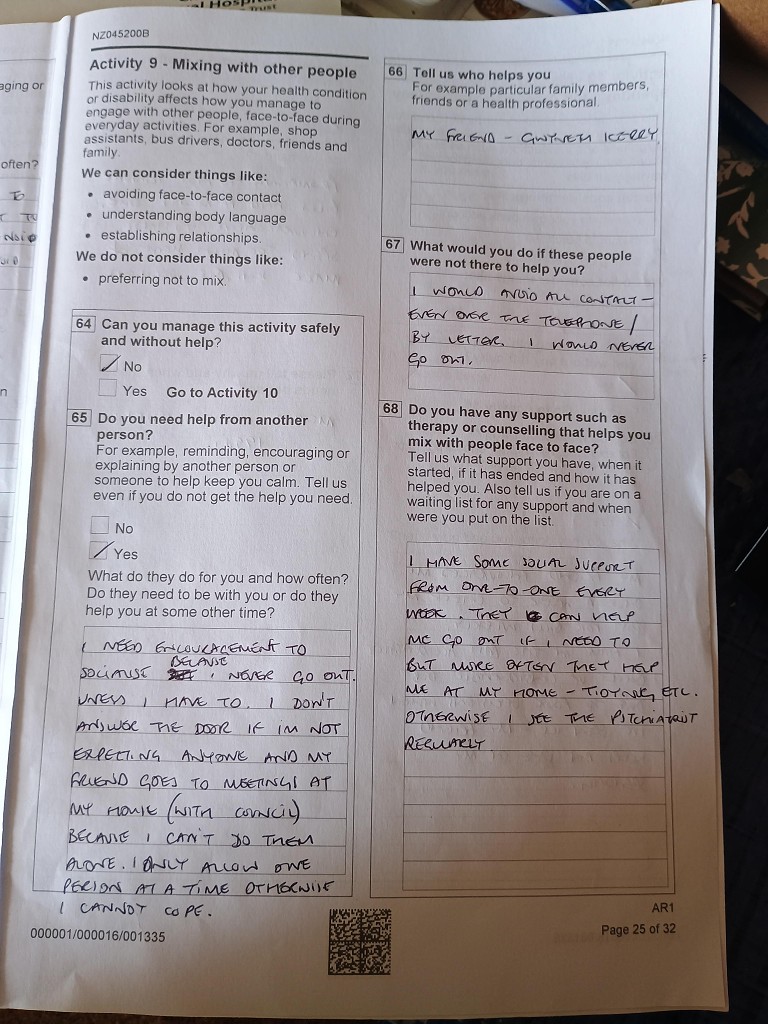 al Hospital
Trust
NZ045200B
Activity 9 - Mixing with other people
This activity looks at how your health condition
or disability affects how you manage to
engage with other people, face-to-face during
everyday activities. For example, shop
assistants, bus drivers, doctors, friends and
family.
We can consider things like:
• avoiding face-to-face contact
• understanding body language
• establishing relationships.
We do not consider things like:
• preferring not to mix.
64 Can you manage this activity safely
and without help?
No
Yes Go to Activity 10
65 Do you need help from another
person?
For example, reminding, encouraging or
explaining by another person or
someone to help keep you calm. Tell us
even if you do not get the help you need.
No
Yes
What do they do for you and how often?
Do they need to be with you or do they
help you at some other time?
I NEED ENCOURAGEMENT TO
SOCIALISE BECAUSE I NEVER GO OUT.
UNESS I HAVE TO. I DON'T
ANSWER THE DOOR IF IM NOT
EXPECTING ANYONE AND MY
FRIEND GOES TO MEETINGS AT
MY HOUSE (WITH COUNCIL)
BECAUSE I CAN'T DO THEM
ALONE. I ONLY ALLOW ONE
PERSON AT A TIME OTHERWISE
I CANNOT COPE.
000001/000016/001335
66 Tell us who helps you
For example particular family members,
friends or a health professional.
MY FRIEND - GWYNETH KERRY
67 What would you do if these people
were not there to help you?
I WOULD AVOID ALL CONTACT -
EVEN OVER THE TELEPHONE /
BY LETTER. I WOULD NEVER
GO OUT.
68 Do you have any support such as
therapy or counselling that helps you
mix with people face to face?
Tell us what support you have, when it
started, if it has ended and how it has
helped you. Also tell us if you are on a
waiting list for any support and when
were you put on the list.
I HAVE SOME SOCIAL SUPPORT
FROM ONE-TO-ONE EVERY
WEEK. THEY CAN HELP
ME GO OUT IF I NEED TO
BUT MORE OFTEN THEY HELP
ME AT MY HOME - TIDYING, ETC.
OTHERWISE I SEE THE PSYCHIATRIST
REGULARLY
AR1
Page 25 of 32
aging or
often?
TO